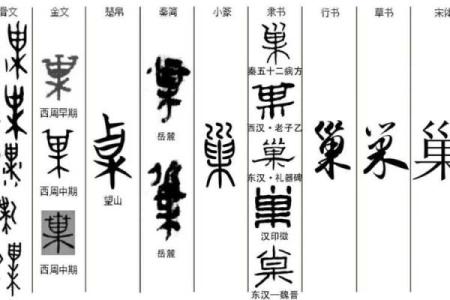 骨文 金文 楚帛 秦简 小篆 隶书 行书 草书 宋体
西周早期
西周中期
西周中期
望山
岳麓
岳麓
巢
巢
秦五十二病方
巢
西汉·老子乙
巢
东汉·礼器碑
巢
汉印徵
巢
东汉—魏晋
巢
巢
巢